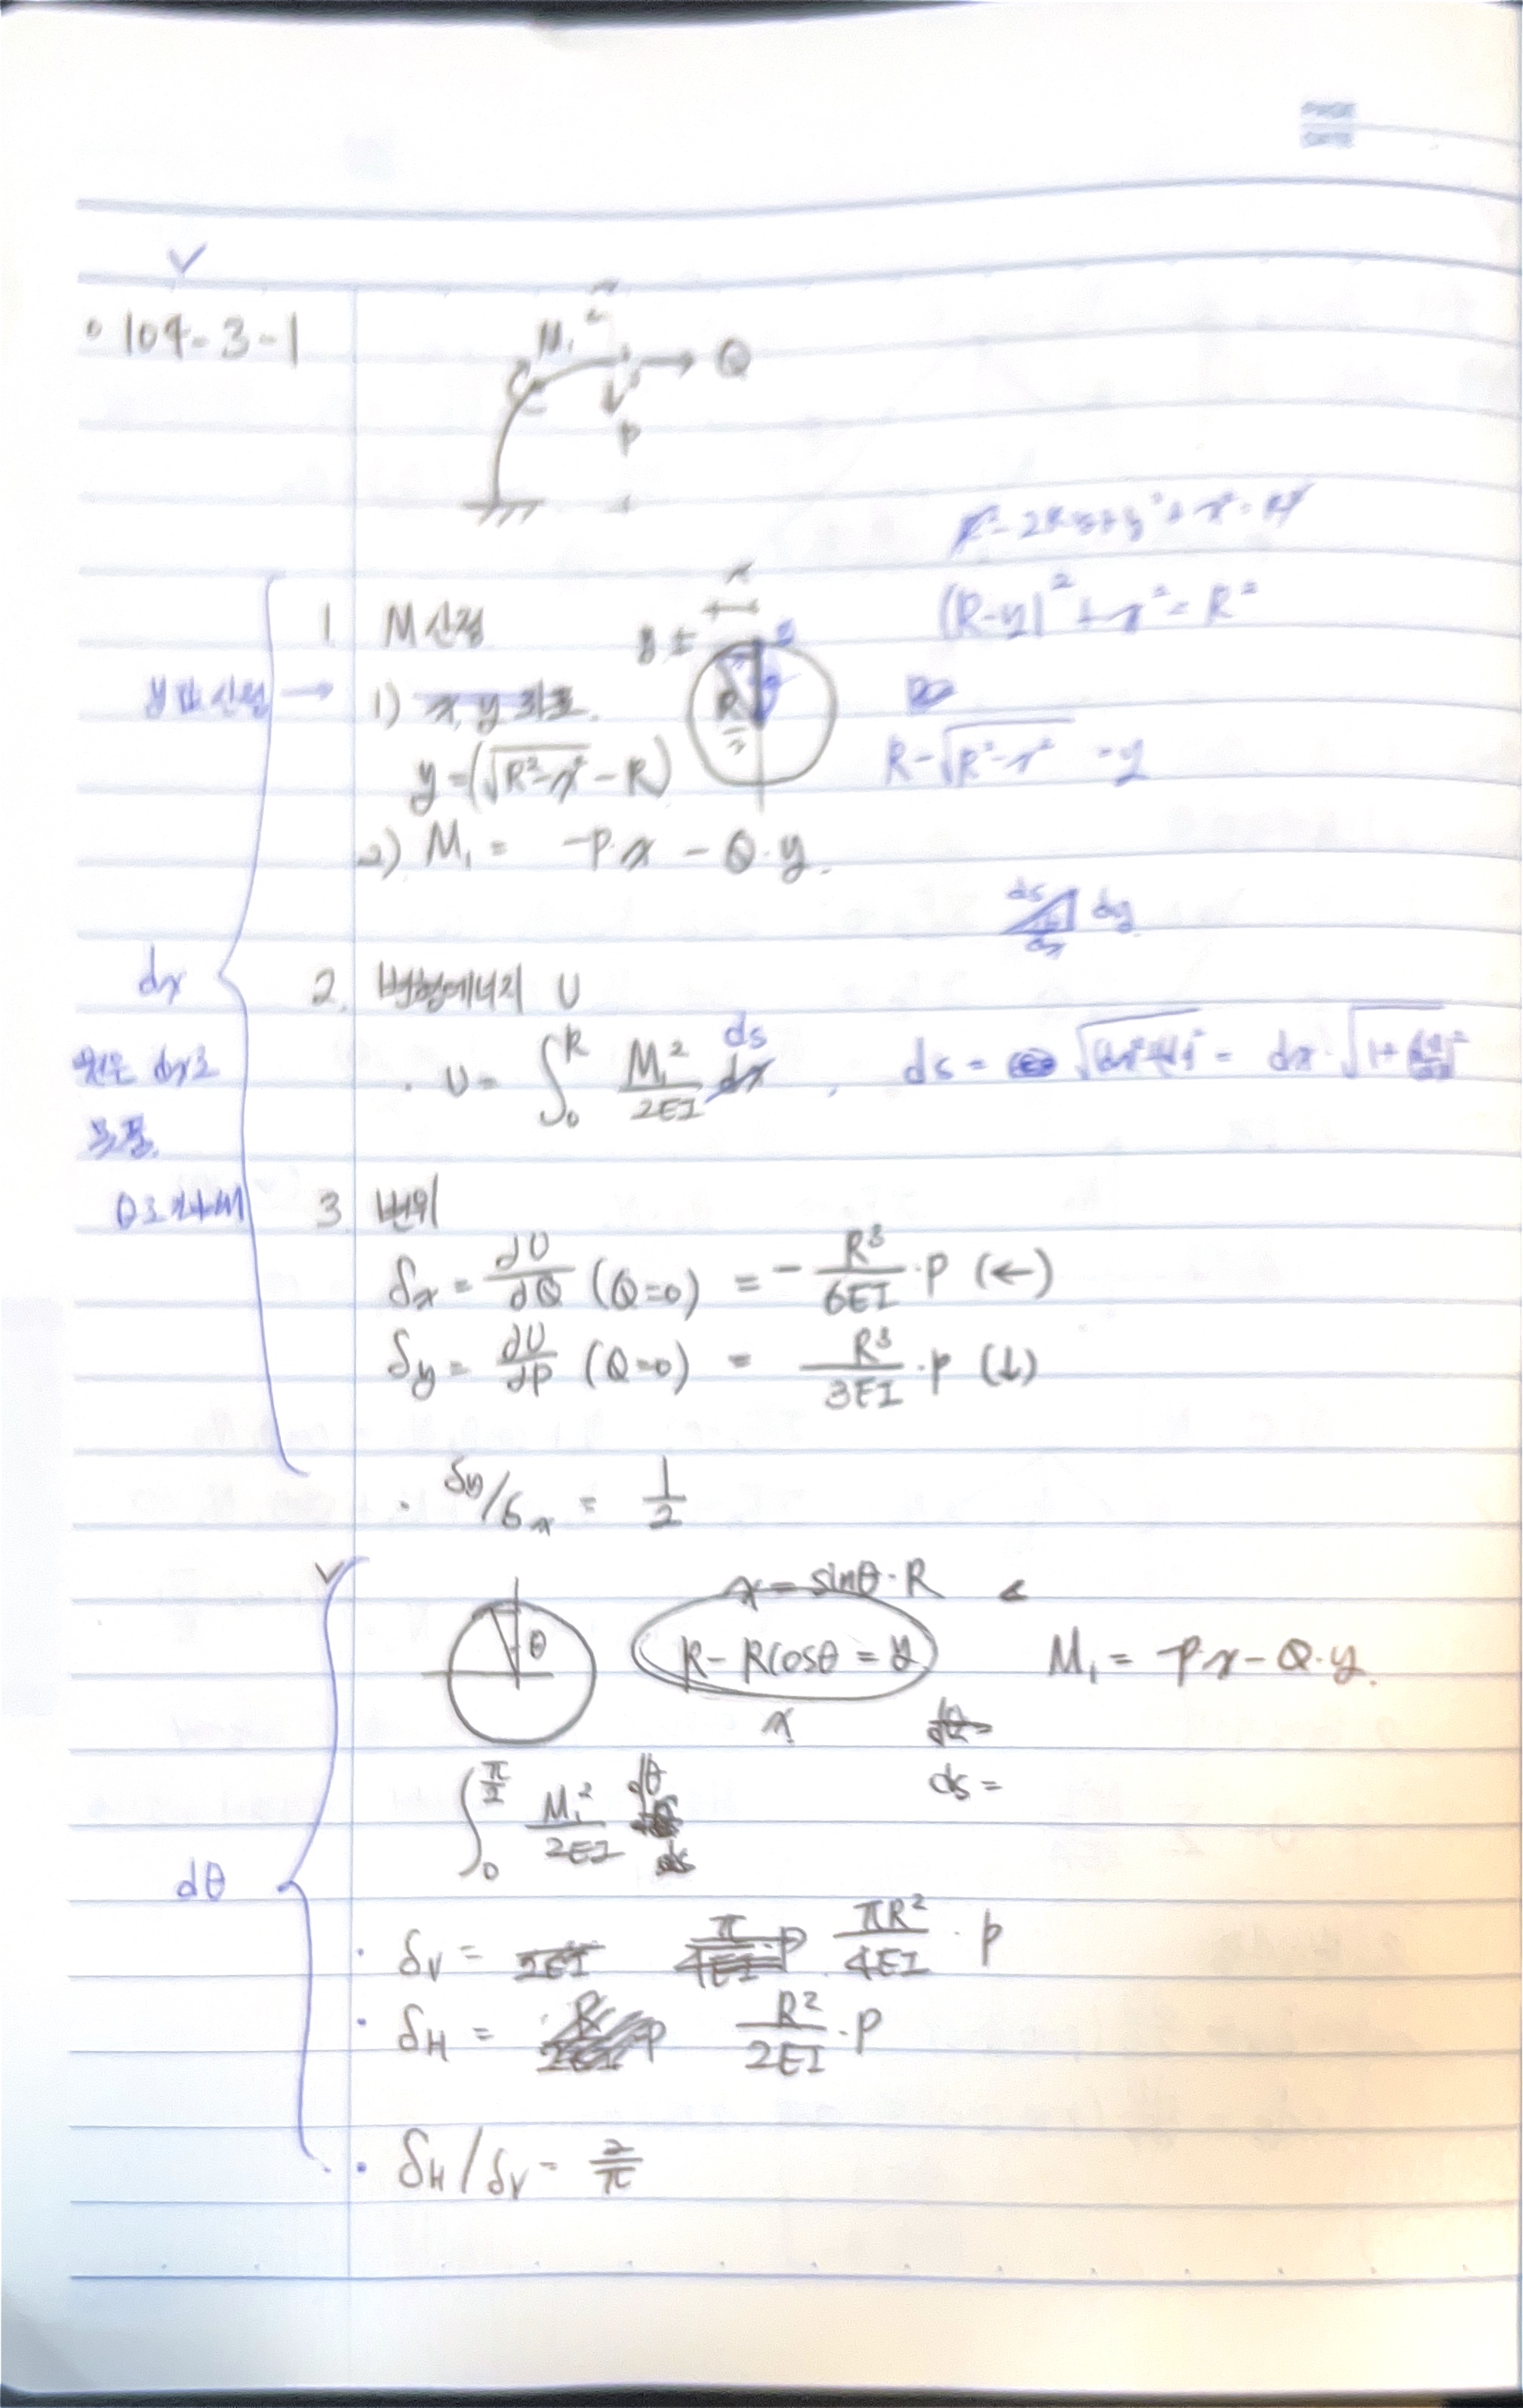 104-3-1
M₁
Q
P
R²-2Ry+y²+x²=R²
1 M산정
(R-y)²+x²=R²
x
R
1) x, y 좌표.
y=(√(R²-x²)-R)
R-√(R²-x²) = y
2) M₁ = -P·x - Q·y.
ds
dy
dx
dx
2. 변형에너지 U
U= ∫₀ᴿ M₁²/2EI dx ds , ds = √(dx²+dy²) = dx·√(1+(dy/dx)²)
원은 dx로
3 변위
δx = ∂U/∂Q (Q=0) = -R³/6EI·P (←)
δy = ∂U/∂P (Q=0) = R³/3EI·P (↓)
δy/δx = 1/2
x = sinθ·R
θ
R-Rcosθ = y
M₁ = -Px-Q·y.
x
ds =
∫₀^(π/2) M₁²/2EI dθ
dθ
δV = πR²/4EI · P
δH = R²/2EI·P
δH/δV = 2/π